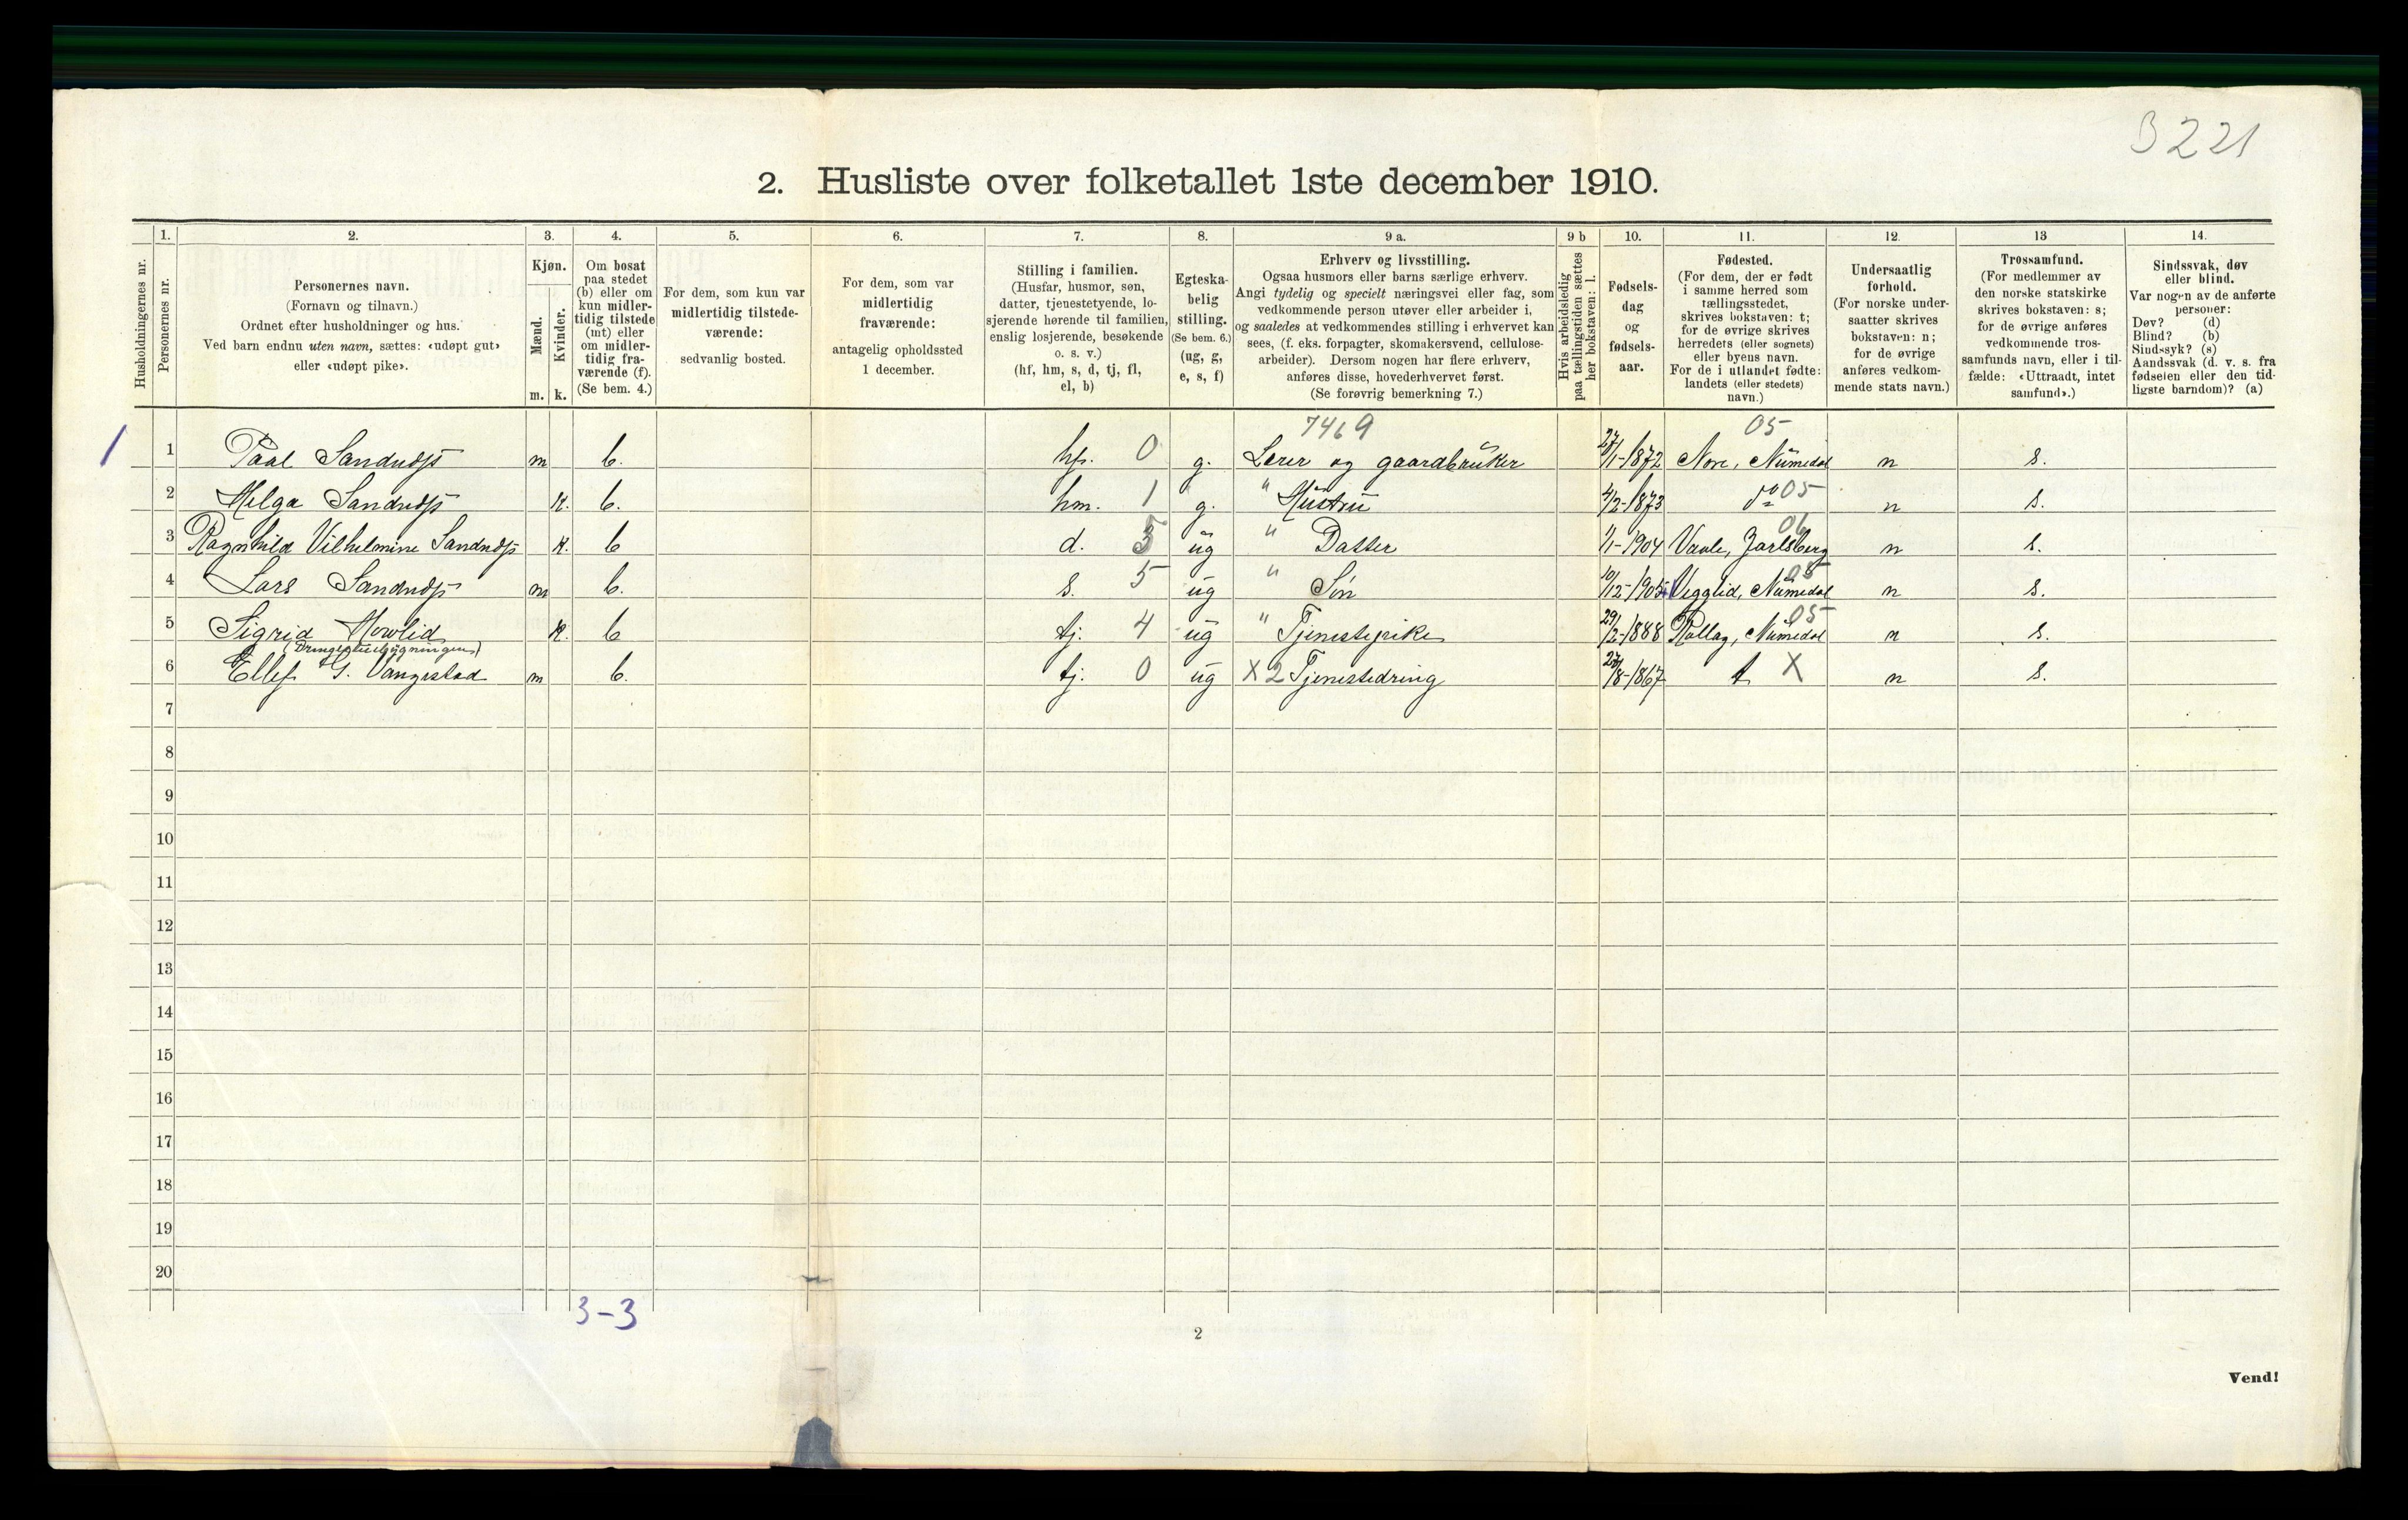 B 221
2. Husliste over folketallet 1ste december 1910.
Husholdningernes nr.
1.
Personernes nr.
2.
Personernes navn.
(Fornavn og tilnavn.)
Ordnet efter husholdninger og hus.
Ved barn endnu uten navn, sættes: «udøpt gut»
eller «udøpt pike».
3.
Kjøn.
Mænd.
Kvinder.
m. k.
4.
Om bosat
paa stedet
(b) eller om
kun midler-
tidig tilstede
(mt) eller
om midler-
tidig fra-
værende (f).
(Se bem. 4.)
5.
For dem, som kun var
midlertidig tilstede-
værende:
sedvanlig bosted.
6.
For dem, som var
midlertidig
fraværende:
antagelig opholdssted
1 december.
7.
Stilling i familien.
(Husfar, husmor, søn,
datter, tjenestetyende, lo-
sjerende hørende til familien,
enslig losjerende, besøkende
o. s. v.)
(hf, hm, s, d, tj, fl,
el, b)
8.
Egteska-
belig
stilling.
(Se bem. 6.)
(ug, g,
e, s, f)
9 a.
Erhverv og livsstilling.
Ogsaa husmors eller barns særlige erhverv.
Angi tydelig og specielt næringsvei eller fag, som
vedkommende person utøver eller arbeider i,
og saaledes at vedkommendes stilling i erhvervet kan
sees, (f. eks. forpagter, skomakersvend, cellulose-
arbeider). Dersom nogen har flere erhverv,
anføres disse, hovederhvervet først.
(Se forøvrig bemerkning 7.)
9 b
Hvis arbeidsledig
paa tællingstiden sættes
her bokstaven: l.
10.
Fødsels-
dag
og
fødsels-
aar.
11.
Fødested.
(For dem, der er født
i samme herred som
tællingsstedet,
skrives bokstaven: t;
for de øvrige skrives
herredets (eller sognets)
eller byens navn.
For de i utlandet fødte:
landets (eller stedets)
navn.)
12.
Undersaatlig
forhold.
(For norske under-
saatter skrives
bokstaven: n;
for de øvrige
anføres vedkom-
mende stats navn.)
13
Trossamfund.
(For medlemmer av
den norske statskirke
skrives bokstaven: s;
for de øvrige anføres
vedkommende tros-
samfunds navn, eller i til-
fælde: «Uttraadt, intet
samfund».)
14.
Sindssvak, døv
eller blind.
Var nogen av de anførte
personer:
Døv? (d)
Blind? (b)
Sindssyk? (s)
Aandssvak (d. v. s. fra
fødselen eller den tid-
ligste barndom)? (a)
7469 05
1 1 Paal m b. hf. 0 g. Lærer og gaardbruker 27/1-1872 Nore, Numedal n s.
2 Helga k. b. hm. 1 g. " Hustru 4/2-1873 do 05 n s.
06
3 Ragnhild Vilhelmine k. b d. 5 ug " Datter 1/1-1904 Vaale, Jarlsberg n s.
4 Lars m b. s. 5 ug " Søn 10/12-1905 Vegglid, Numedal n s.
05
5 Sigrid k. b tj. 4 ug " Tjenestepike 29/2-1888 Rollag, Numedal n s.
6 Ellef G. Vangestad m b. tj. 0 ug X 2 Tjenestedreng 27/8-1867 t X n s.
7
8
9
10
11
12
13
14
15
16
17
18
19
20
3-3
2
Vend!